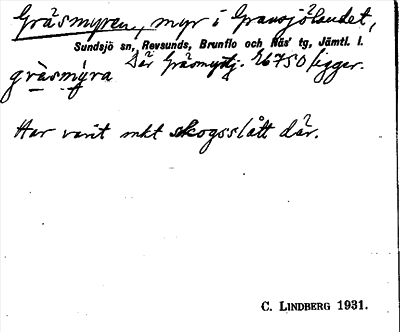 Gräsmyren, myr i Gransjölandet,
Sundsjö sn, Revsunds, Brunflo och Näs' tg, Jämtl. l.
gräsmýra där Gräsmyrtj. 26750 ligger.
Har varit mkt skogsslått där.
C. LINDBERG 1931.